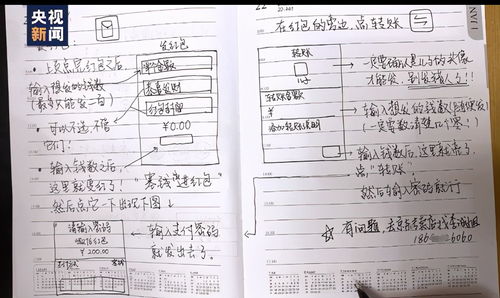 央视新闻
发红包
上页点完红包之后
输入想发的钱数
(最多只能发二百)
单个金额
恭喜发财
红包封面
¥0.00
可以不选,不管
它们!
输入钱数之后
这里就变红了!
"塞钱进红包"
然后点它一下出现下图↓
请输入密码
微信红包
¥200.00
支付方式
零钱
← 输入支付密码
就发出去了。
22
在红包的旁边,点转账
转账
转账金额
¥
添加转账说明
一定要确认是儿子的头像
才能发,别发错人了!!
输入想发的钱数
(一定要数清楚几个零!)
输入钱数后,这里就亮了。
点"转账"
然后输入密码就行
☆ 有问题,去京东
6060